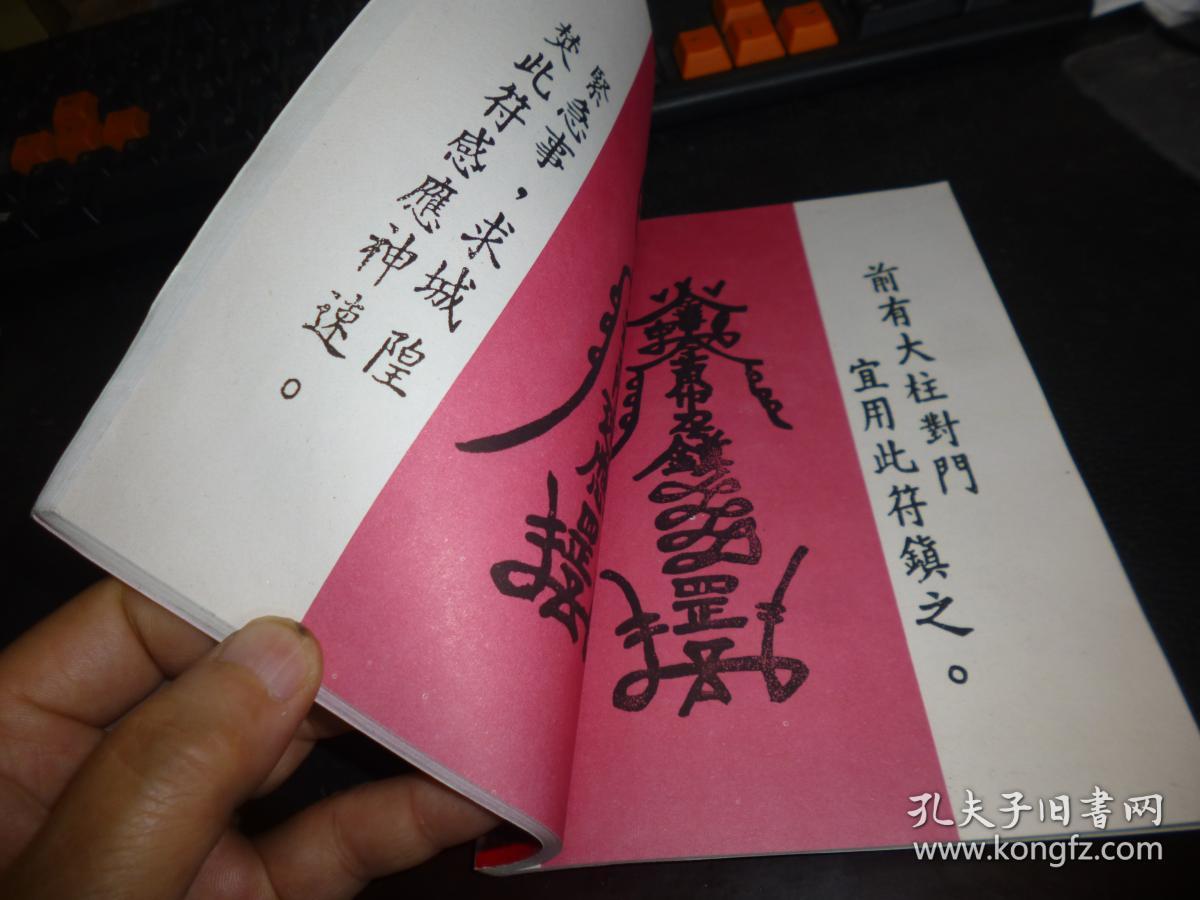 緊急事，求城隍
焚此符感應神速。
前有大柱對門
宜用此符鎮之。
罡
孔夫子旧书网
www.kongfz.com